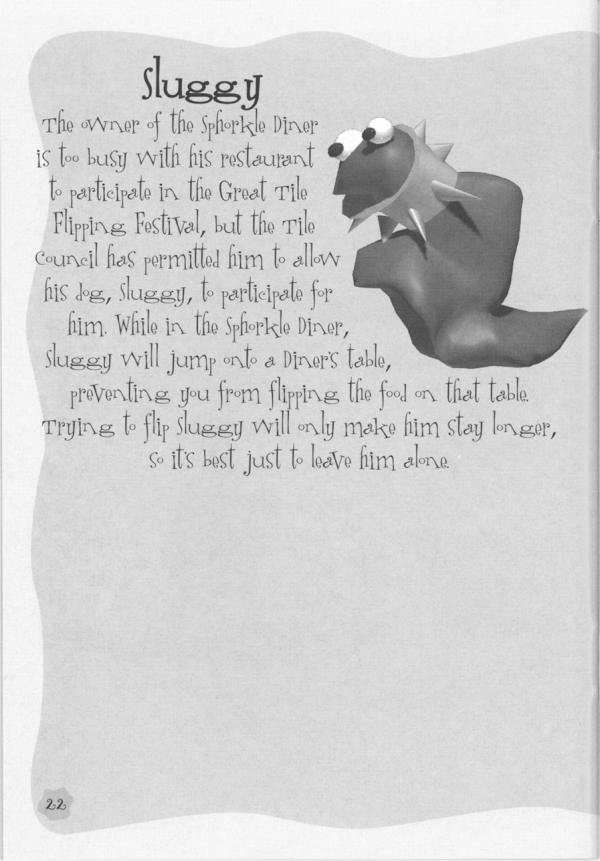 Sluggy
The owner of the Sphorkle Diner
is too busy with his restaurant
to participate in the Great Tile
Flipping Festival, but the Tile
Council has permitted him to allow
his dog, Sluggy, to participate for
him. While in the Sphorkle Diner,
Sluggy will jump onto a Diner's table,
preventing you from flipping the food on that table.
Trying to flip Sluggy will only make him stay longer,
so it's best just to leave him alone.
22